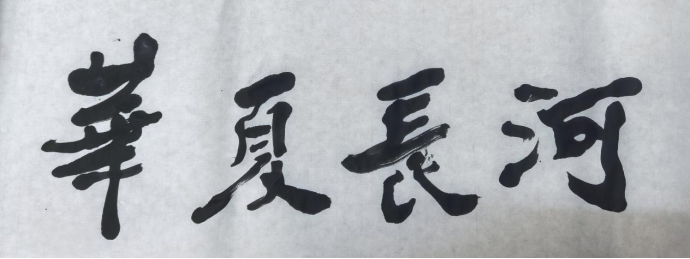 華夏長河